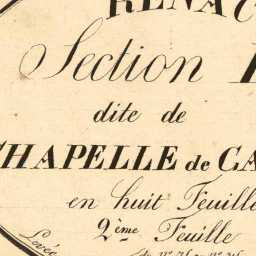 RENAU
Section
dite de
CHAPELLE de CA
en huit Feuille
2ème Feuille
Levée